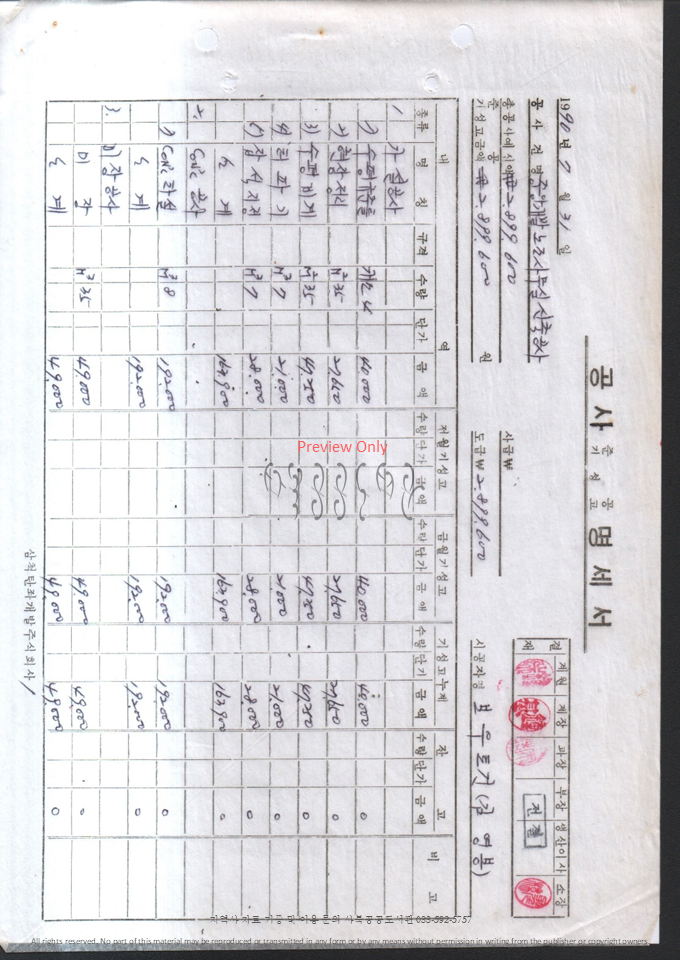 공사 준공 기성고 명세서
1990년 7월 31일
공사건명 중앙개발 노조사무실 신축공사
총공사예시액 ₩2,899,600
사급₩
준공 기성고금액 ₩2,899,600 원
도급₩2,899,600
시공자명 보우토건(김영봉)
결재 계원 계장 과장 부장 생산이사 소장
전결
내역 전월기성고 금월기성고 기성고누계 잔고 비고
종류 명칭 규격 수량 단가 금액 수량 단가 금액 수량 단가 금액 수량 단가 금액 수량 단가 금액
1 가설공사
1) 수평규준틀 개소 4 40,000 40,000 40,000 0
2) 현장정리 M² 35 27,650 27,650 27,650 0
3) 수평비계 M² 35 47,250 47,250 47,250 0
4) 터파기 M³ 7 21,000 21,000 21,000 0
5) 잡석지정 M³ 7 28,000 28,000 28,000 0
소계 163,900 163,900 163,900 0
2. CON'C 공사
1) CON'C 타설 M³ 8 192,000 192,000 192,000 0
소계 192,000 192,000 192,000 0
3. 미장공사
미장 M² 35 49,000 49,000 49,000 0
소계 49,000 49,000 49,000 0
삼척탄좌개발주식회사
Preview Only
지역사 자료 기증 및 이용 문의 사북공공도서관 033-592-5757
All rights reserved. No part of this material may be reproduced or transmitted in any form or by any means without permission in writing from the publisher or copyright owners.